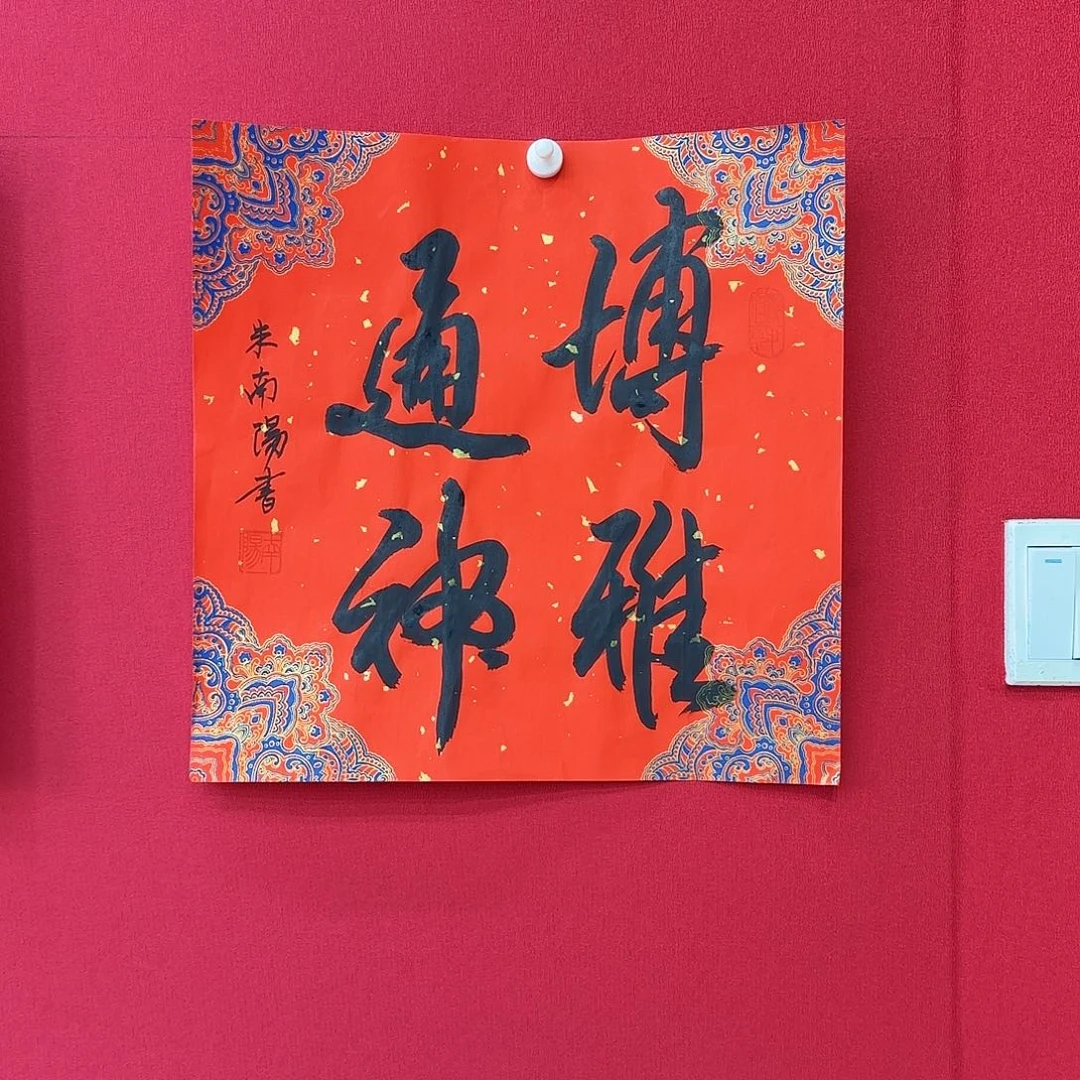 博雅
通神
朱南陽書